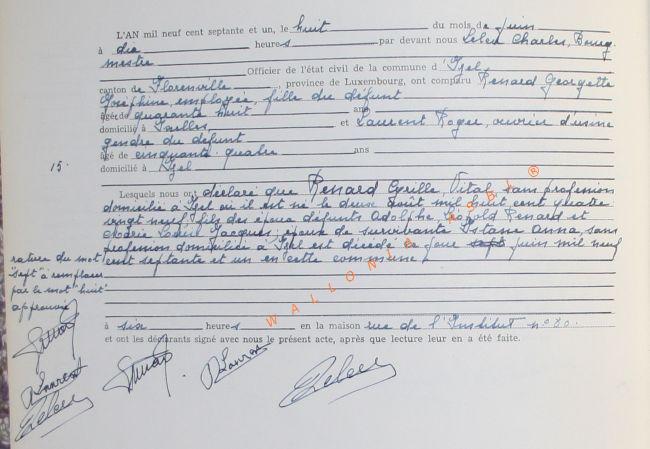 L'AN mil neuf cent septante et un, le huit du mois de juin
à dix heures par devant nous Lebeu Charles, Bourg-
mestre
Officier de l'état civil de la commune d'Izel,
canton de Florenville, province de Luxembourg, ont comparu Renard Georgette
Joséphine, employée, fille du défunt
âgée de quarante huit ans
domicilié à Ixelles et Laurent Roger, ouvrier d'usine
gendre du défunt
âgé de cinquante quatre ans
15. domicilié à Izel
Lesquels nous ont déclaré que Renard Cyrille, Vital, sans profession
domicilié à Izel où il est né le deux août mil huit cent quatre
vingt neuf, fils des époux défunts Adolphe, Léopold Renard et
Marie Louise Jacques; époux de survivante Istace Anna, sans
profession domiciliée à Izel est décédé ce jour sept juin mil neuf
cent septante et un en cette commune
rature du mot
"sept" à remplacer
par le mot "huit"
approuvée
WALLONIE ®
à six heures en la maison rue de l'Institut n° 80.
et ont les déclarants signé avec nous le présent acte, après que lecture leur en a été faite.
RLaurent